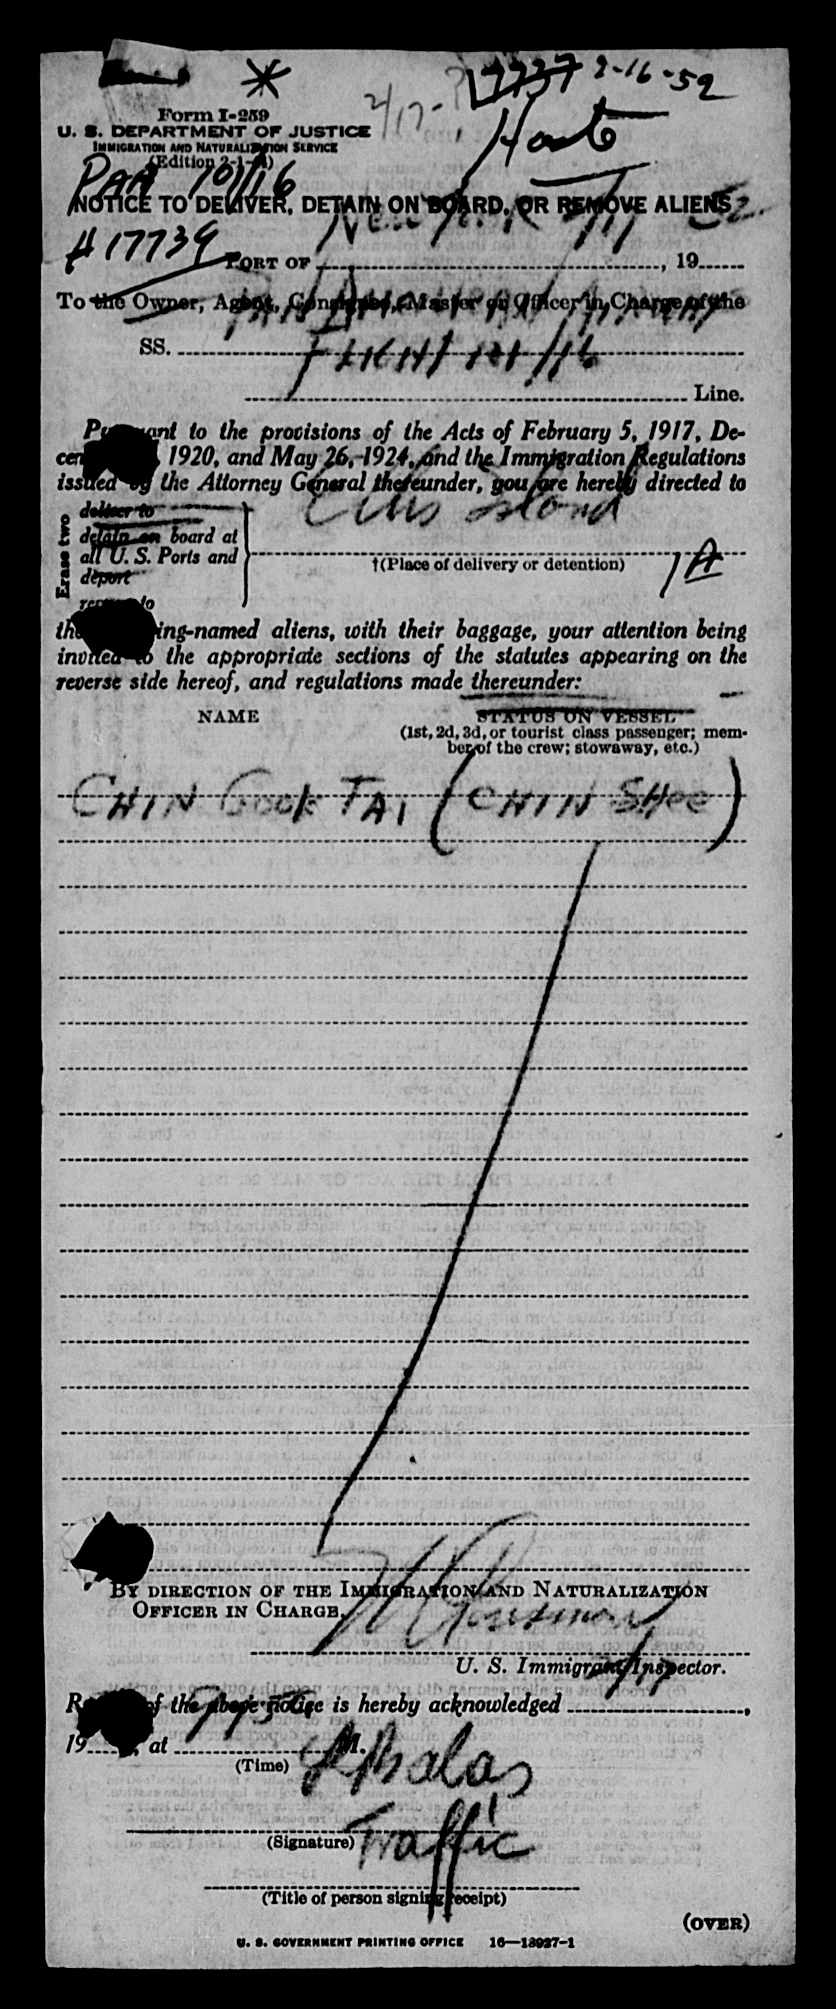 17737 2-16-52
2/17-
Form I-259
U. S. DEPARTMENT OF JUSTICE
IMMIGRATION AND NATURALIZATION SERVICE
(Edition 2-1-
PAA 101/16
NOTICE TO DELIVER, DETAIN ON BOARD, OR REMOVE ALIENS
# 17739
New York 2/17 52
PORT OF , 19
To the Owner, Agent, Consignee, Master or Officer in Charge of the
PAN AMERICAN AIRWAYS
SS. FLIGHT 101/16
Line.
Pursuant to the provisions of the Acts of February 5, 1917, De-
1920, and May 26, 1924, and the Immigration Regulations
issued by the Attorney General thereunder, you are hereby directed to
Erase two
deliver to
detain on board at
all U. S. Ports and
deport
Ellis Island
†(Place of delivery or detention)
1A
ing-named aliens, with their baggage, your attention being
invited to the appropriate sections of the statutes appearing on the
reverse side hereof, and regulations made thereunder:
NAME STATUS ON VESSEL
(1st, 2d, 3d, or tourist class passenger; mem-
ber of the crew; stowaway, etc.)
CHIN GOOK TAI (CHIN SHEE)
BY DIRECTION OF THE IMMIGRATION AND NATURALIZATION
OFFICER IN CHARGE.
U. S. Immigrant Inspector.
2/17
of the above notice is hereby acknowledged ,
19 , at M.
(Time)
(Signature)
Traffic
(Title of person signing receipt)
(OVER)
U. S. GOVERNMENT PRINTING OFFICE 16—13927-1